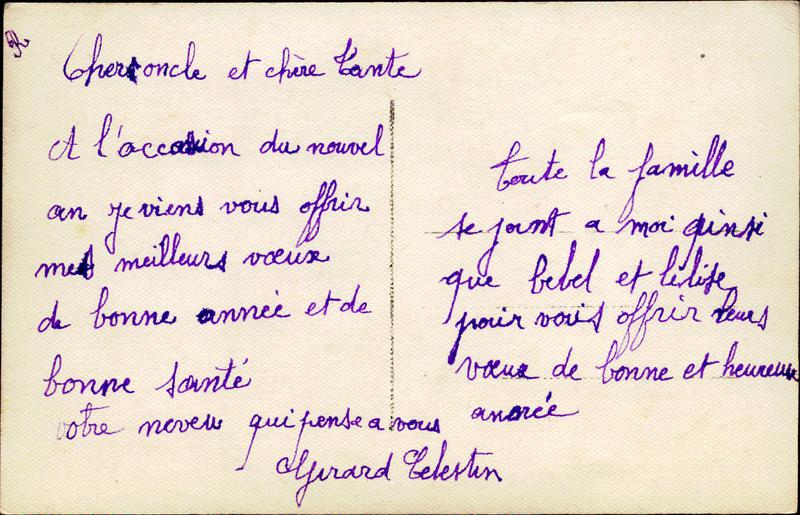 Chers oncle et chère Tante
A l'occasion du nouvel
an je viens vous offrir
mes meilleurs vœux
de bonne année et de
bonne santé
votre neveu qui pense a vous
Gérard Celestin
toute la famille
se joint a moi ainsi
que bebel et
pour vous offrir leurs
vœux de bonne et heureuse
année